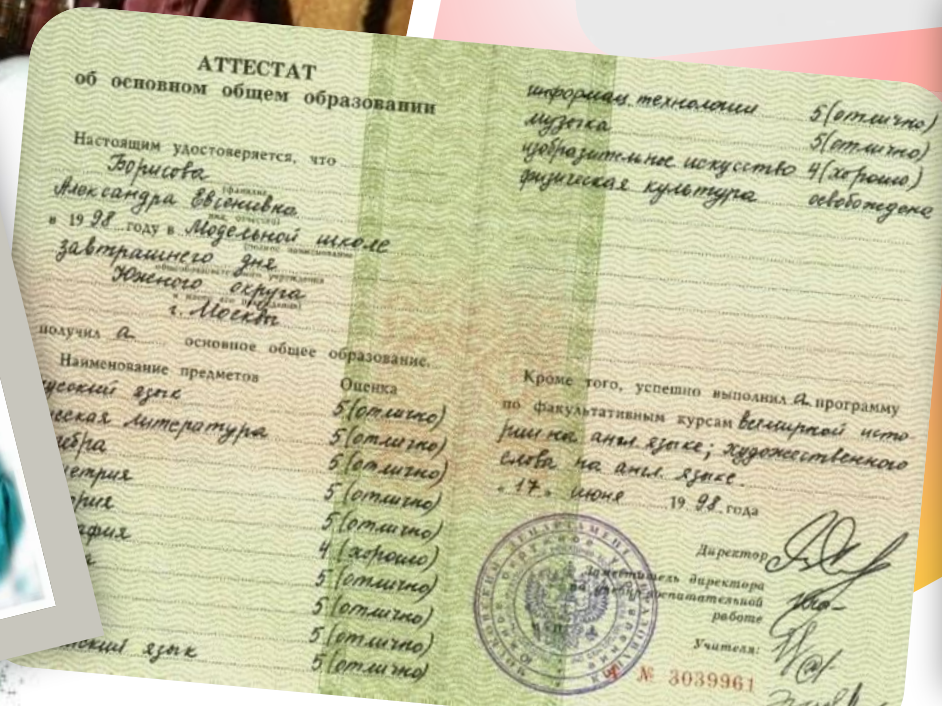 АТТЕСТАТ
об основном общем образовании
Настоящим удостоверяется, что
Борисова
(фамилия,
Александра Евгениевна
имя, отчество)
в 1998 году в Модельной школе
(полное наименование
завтрашнего дня
общеобразовательного учреждения
Южного округа
г. Москвы
получила основное общее образование.
Наименование предметов Оценка
усский язык 5(отлично)
еская литература 5(отлично)
ебра 5(отлично)
метрия 5(отлично)
ория 5(отлично)
афия 4(хорошо)
5(отлично)
5(отлично)
5(отлично)
язык 5(отлично)
информац. технологии 5(отлично)
музыка 5(отлично)
изобразительное искусство 4(хорошо)
физическая культура освобождена
Кроме того, успешно выполнила программу
по факультативным курсам всемирной исто-
рии на англ. языке; художественного
слова на англ. языке.
"17" июня 1998 года
Директор
Заместитель директора
по учебно-воспитательной
работе
Учителя:
№ 3039961